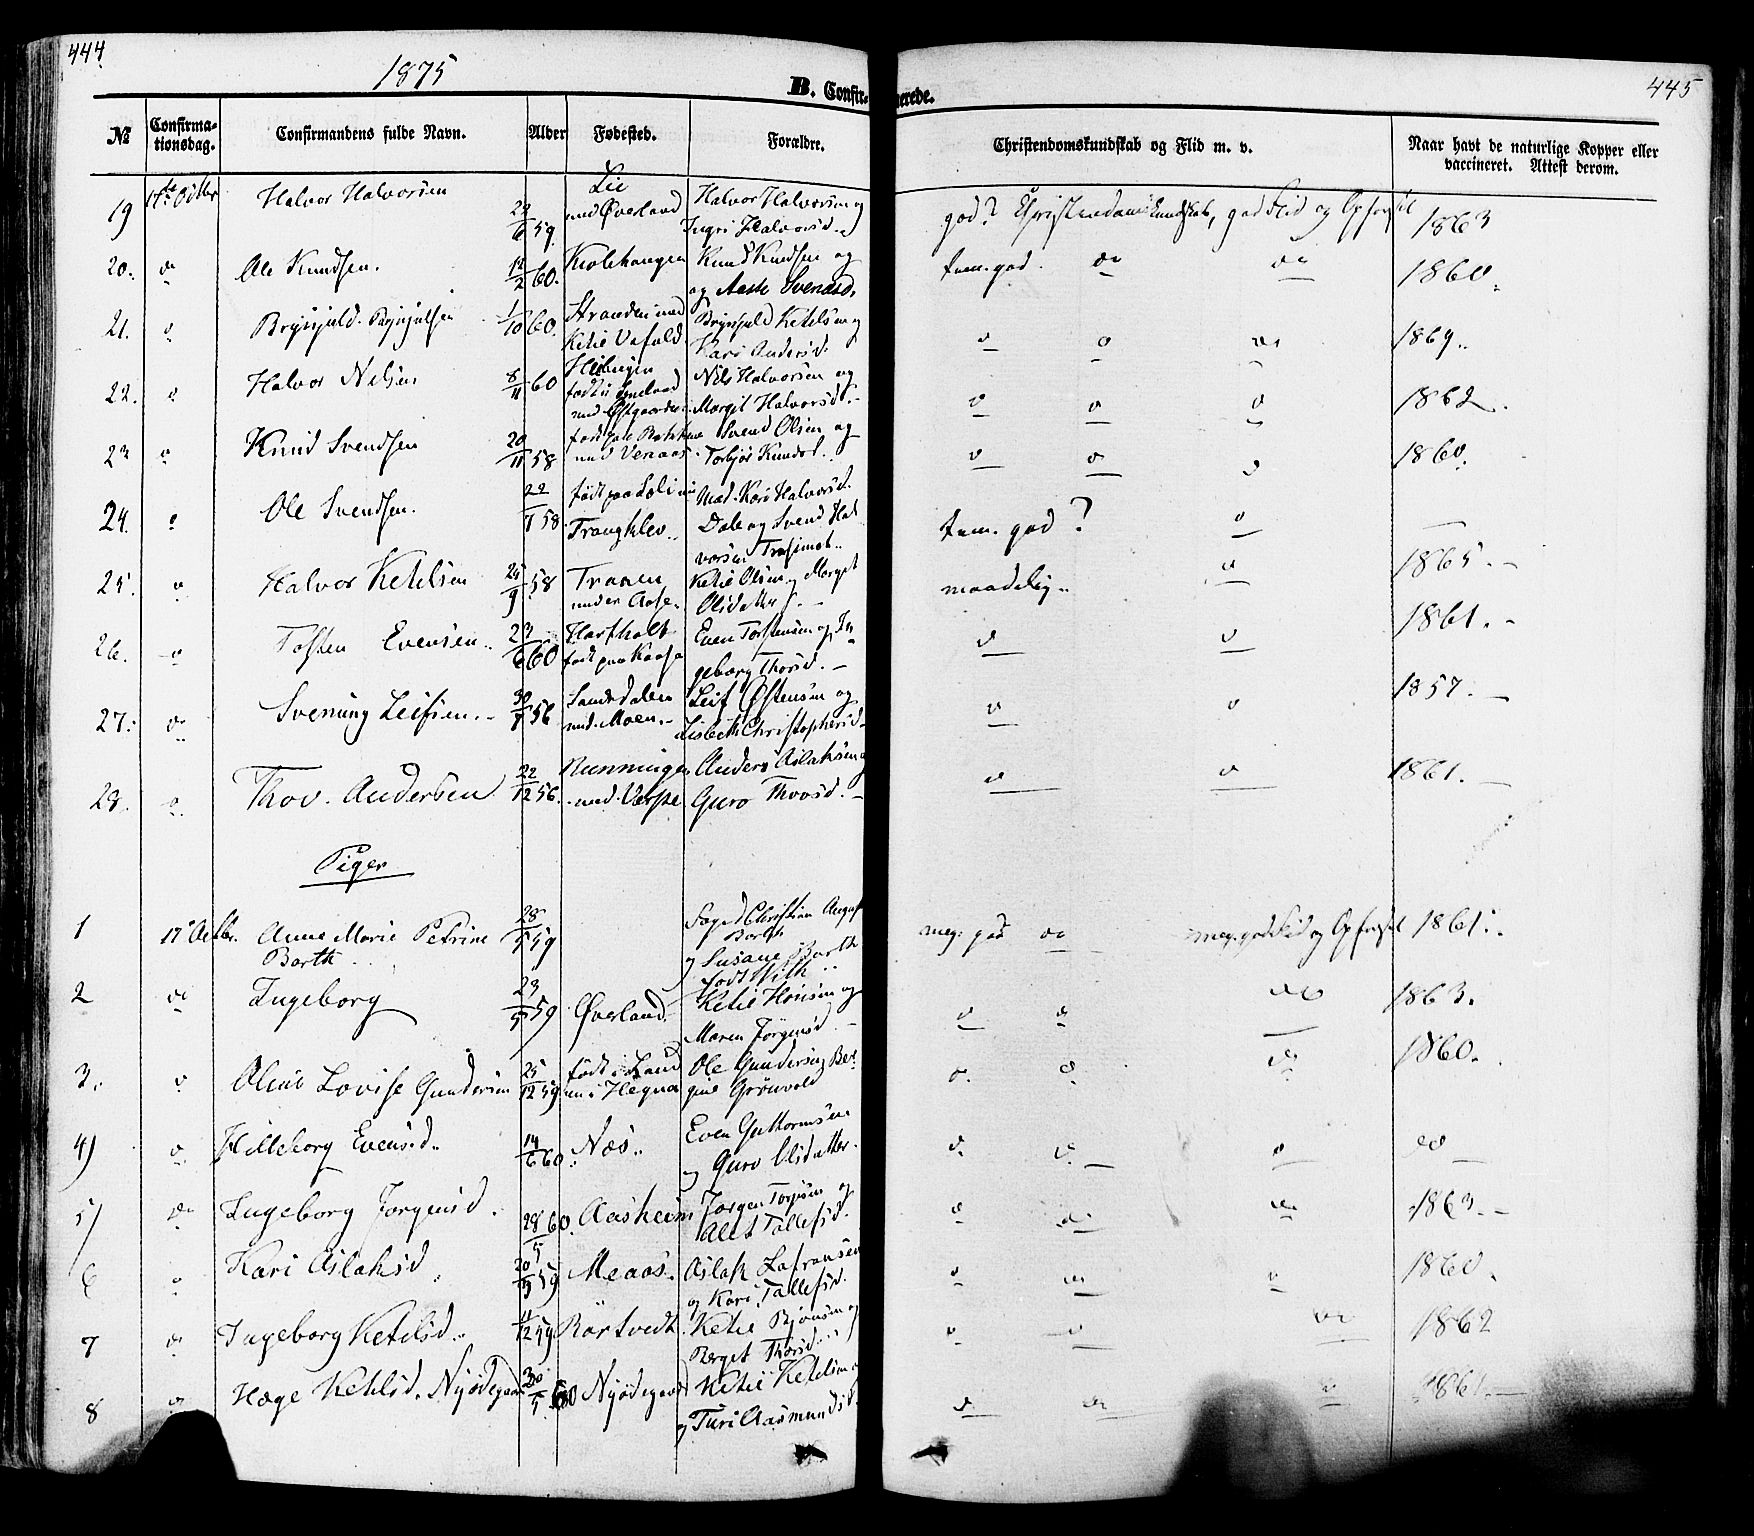 444
1875
B. Confir-
merede.
445
No
Confirma-
tionsdag.
Confirmandens fulde Navn.
Alder
Fødested.
Forældre.
Christendomskundskab og Flid m. v.
Naar havt de naturlige Kopper eller
vaccineret. Attest derom.
19 17de Octbr Halvor Halvorsen 59 Lie
und Øverland Halvor Halvorsen og
Ingri Halvorsd. god? Christendomskundskab, god Flid og Opførsel 1863
20. do Ole Knudsen. 60. Knud Knudsen og
og Aase Svendsd. tem. god. do do 1860.
21. o 1/10 60. Stranden und
Brynjuld Ketilsen og
Kari Andersd. o o do 1869.
22. o Halvor Nilsen 8/11 60
Nils Halvorsen og
Margit Halvorsd. o o o 1862.
23 o Knud Svendsen 20/11 58
und Venaas Svend Olsen og
Torbjør o o o 1860.
24. o Ole Svendsen. 22/7 58 født paa
Trangklev.. Kari Halvorsd.
Dale og Svend Hal
vorsen tem. god? o —
25. o Halvor Ketilsen 58 Traaen
under Aase. Ketil Olsen og Margit
Olsdatter maadelig.. o 1865.
26. o Tosten Evensen.. 23/6 60 Hartholt
født paa Kaasa Even Torstensen og In
geborg Thorsd. o o 1861.
27. do Svenung Leifsen. 30/7 56 Sandsdalen
und. Moen. Leif Østensen og
Lisbeth Christophersd. o o 1857.
28. o Thov. Andersen 22/12 56. Runningen
und. Verpe Anders Aslaksen og
Guro Thovsd. o o 1861.
Piger
1 17 Octbr. Anne Marie Petrine
Barth 28/5 59 Foged Christian August
Barth
og Susane Barth
født meg. god do meg. god Flid og Opførsel 1861.
2 do Ingeborg 23/5 59 Øverland. Ketil
Maren Jörgensd. o o do 1863.
3. o Oline Lovise Gundersen 25/12 59 født i
Hegna Ole Gundersen Ber
gine Grönvold o. o. do 1860.
4) o Hilleborg Evensd. 14/6 60 Næs.. Even Guttormsen
og Guro Olsdatter. o. o. o do
5) do Ingeborg Jorgensd. 28/5 60. Aasheim Jorgen
Tallefsd. o do do 1863.
6 o Kari Aslaksd 59 Meaas. Aslak Lafransen
og Kari Tallefsd. o do o 1860.
7 do Ingeborg Ketilsd.. 11/12 59. Börtvedt. Ketil Bjönsen og
Berget Thorsd. o o do 1862
8 o Hæge Ketilsd. Nyödegaard 30/5 60 Nyödegaard Ketil Ketilsen og
og Turi Aasmundsd. o do o 1861.